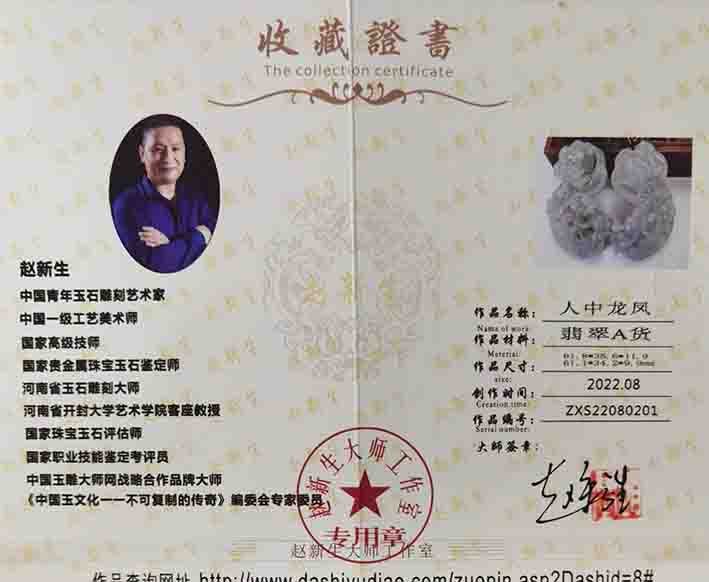 收藏證書
The collection certificate
赵新生
中国青年玉石雕刻艺术家
中国一级工艺美术师
国家高级技师
国家贵金属珠宝玉石鉴定师
河南省玉石雕刻大师
河南省开封大学艺术学院客座教授
国家珠宝玉石评估师
国家职业技能鉴定考评员
中国玉雕大师网战略合作品牌大师
《中国玉文化一一不可复制的传奇》编委会专家委员
作品名称： 人中龙凤
Name of work:
作品材料： 翡翠A货
Material:
作品尺寸： 61.8*35.6*11.9
size: 61.1*34.2*9.9mm
创作时间： 2022.08
Creation time:
作品编号： ZXS22080201
Serial number:
大师签章：
赵新生
赵新生大师工作室
专用章
赵新生大师工作室
作品查询网址 http://www.dashiyudiao.com/zuopin.asp?Dashid=8#